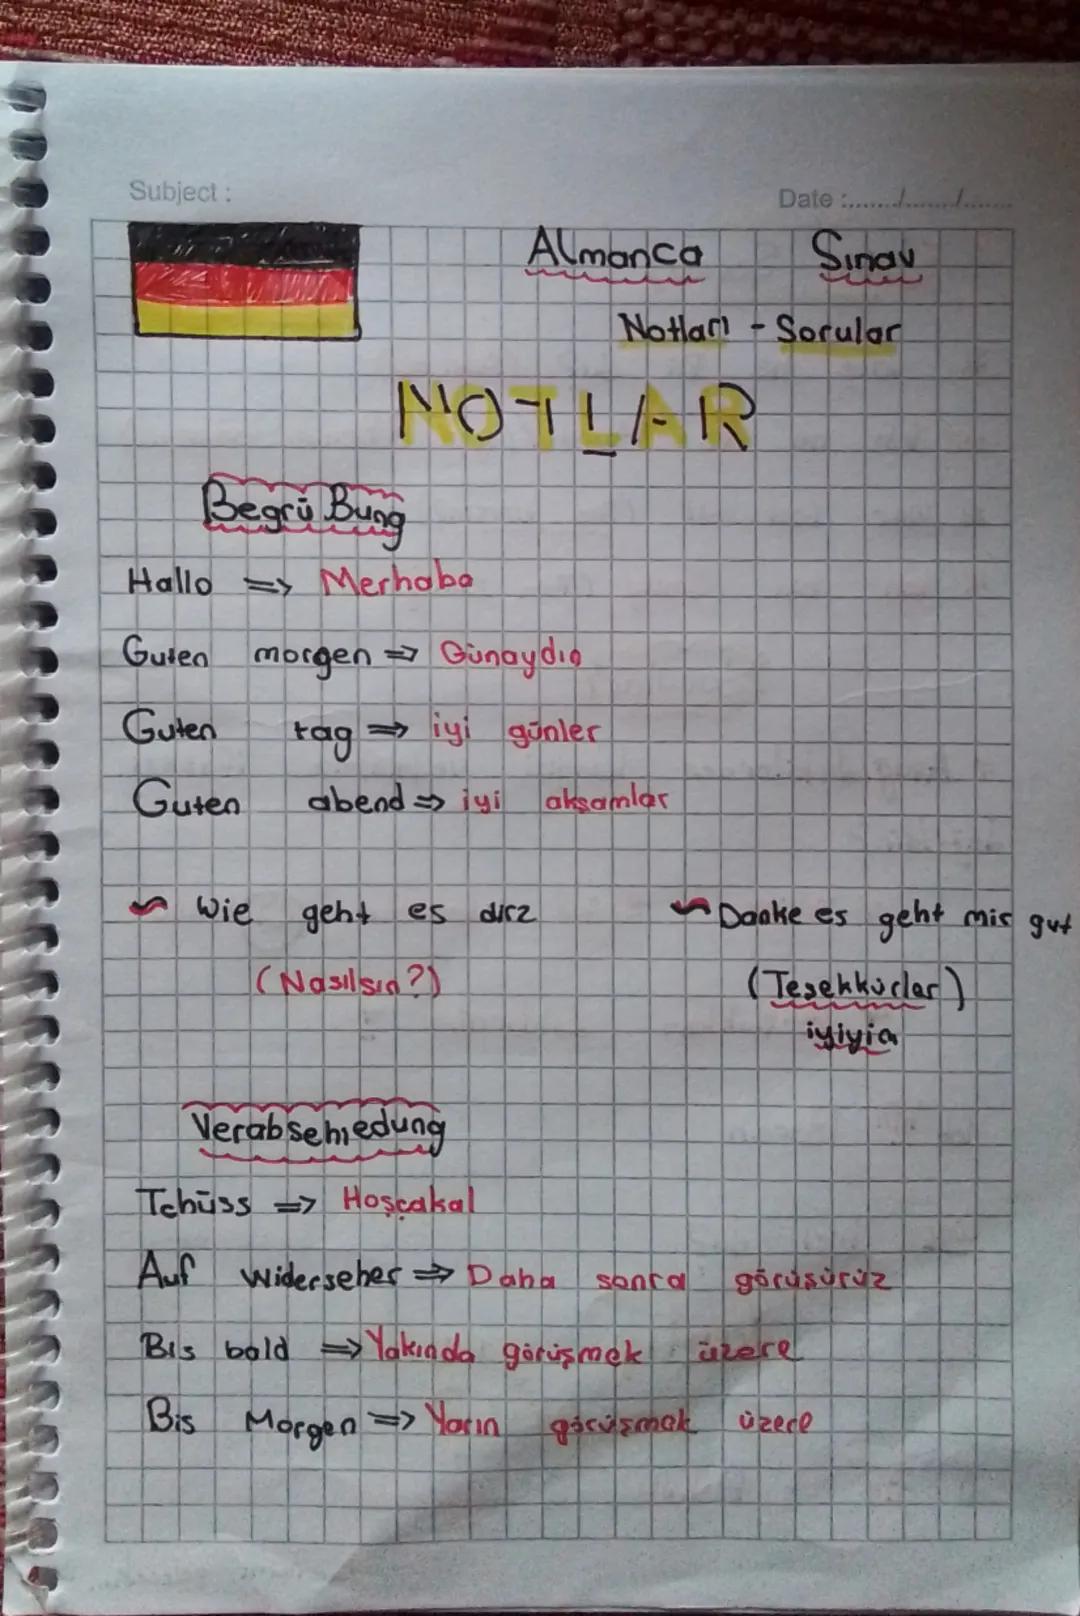 Subject :
Date :......./......./.......
Almanca Sınav
Notları - Sorular
NOTLAR
Begrü Bung
Hallo => Merhaba
Guten morgen => Günaydın
Guten tag => iyi günler
Guten abend => iyi akşamlar
Wie geht es dir?
Danke es geht mir gut
(Nasılsın?)
(Teşekkürler)
iyiyim
Verabschiedung
Tchüss => Hoşçakal
Auf widerseher => Daha sonra görüşürüz
Bis bald => Yakında görüşmek üzere
Bis Morgen => Yarın görüşmek üzere